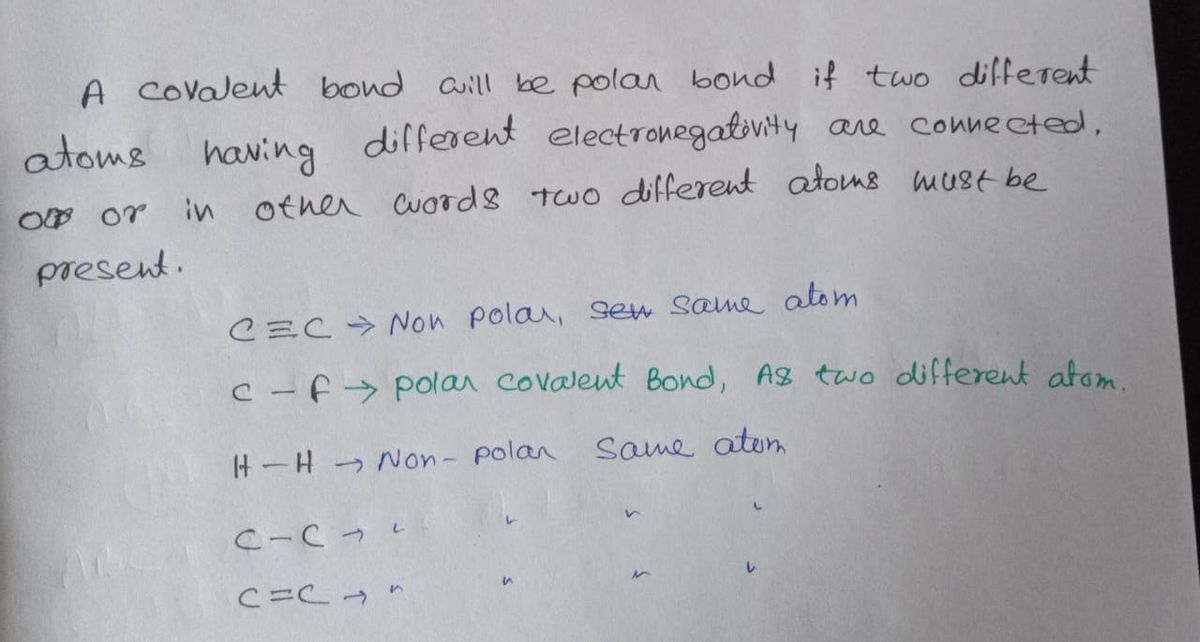 A covalent bond will be polar bond if two different
atoms having different electronegativity are connected,
or in other words two different atoms must be
present.
C≡C → Non polar, same atom
C - F → polar covalent Bond, As two different atom.
H - H → Non - polar Same atom
C - C → " " " "
C = C → " " " "